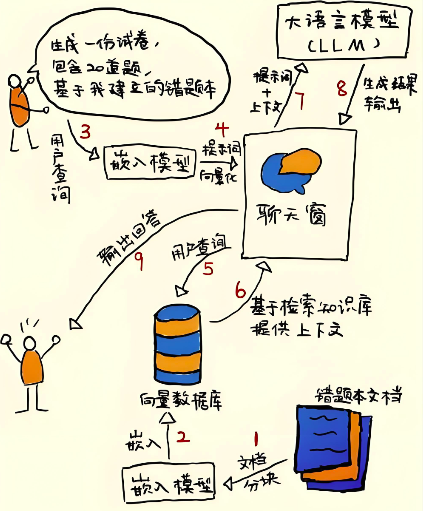 生成一份试卷,
包含20道题,
基于我建立的错题本
大语言模型
(LLM)
3
用户查询
嵌入模型
4
提示词
向量化
提示词
+
上下文
7
8
生成结果
输出
聊天窗
输出回答
9
用户查询
5
6
基于检索知识库
提供上下文
向量数据库
错题本文档
嵌入
2
1
文档
分块
嵌入模型